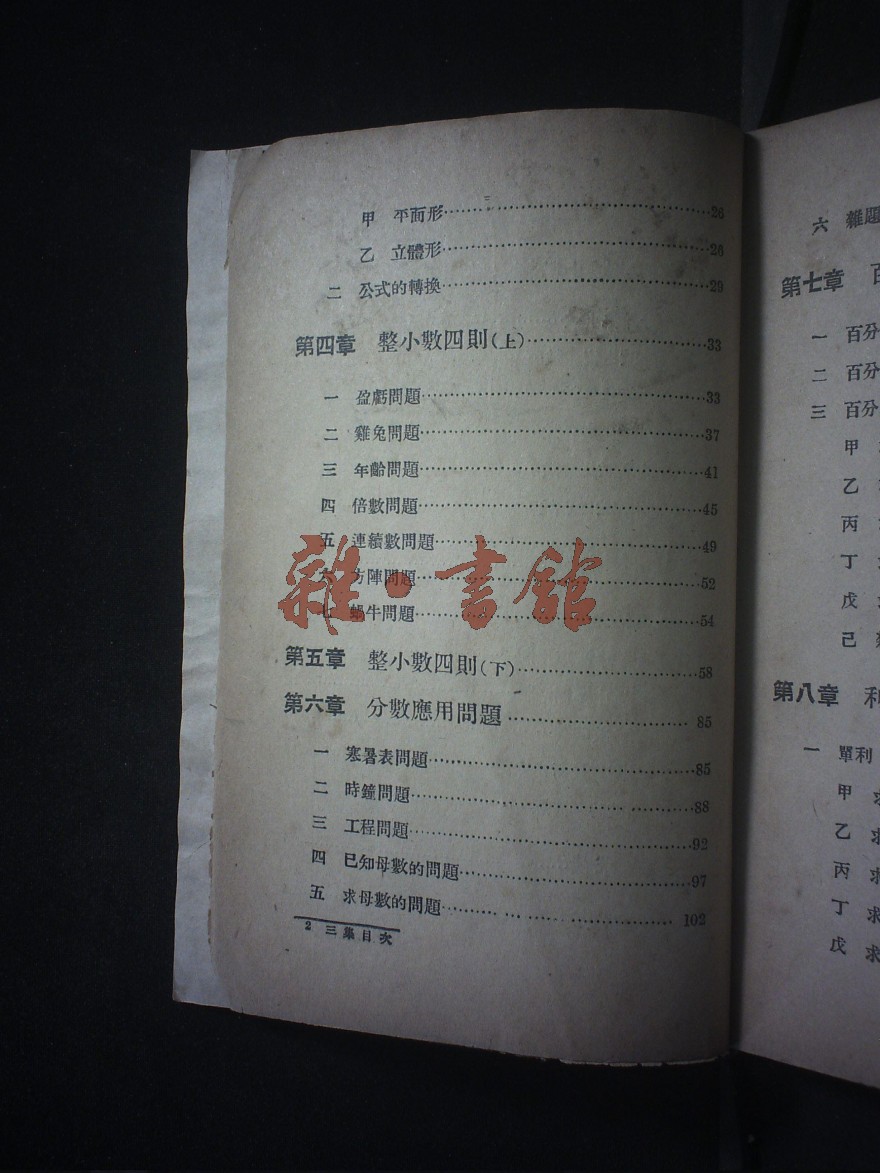 甲 平面形 26
乙 立體形 26
二 公式的轉換 29
第四章 整小數四則(上) 33
一 盈虧問題 33
二 雞兔問題 37
三 年齡問題 41
四 倍數問題 45
五 連續數問題 49
六 方陣問題 52
七 蝸牛問題 54
雜·書館
第五章 整小數四則(下) 58
第六章 分數應用問題 85
一 寒暑表問題 85
二 時鐘問題 88
三 工程問題 92
四 已知母數的問題 97
五 求母數的問題 102
2 三集目次
六 雜題
第七章 百
一 百分
二 百分
三 百分
甲
乙
丙
丁
戊
己
第八章 利
一 單利
甲 求
乙 求
丙 求
丁 求
戊 求